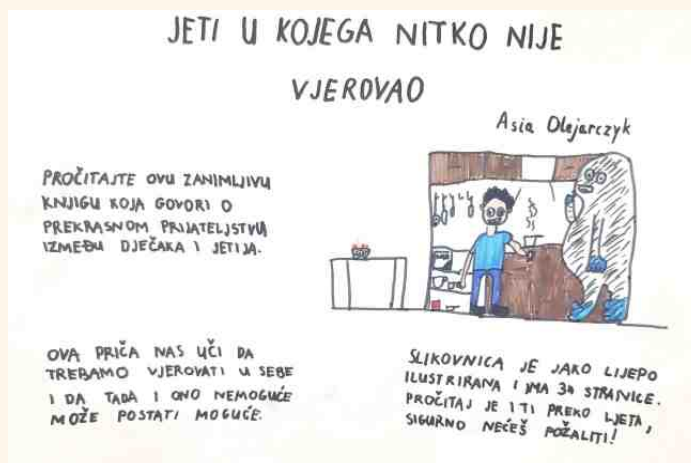 JETI U KOJEGA NITKO NIJE
VJEROVAO
Asia Olejarczyk
PROČITAJTE OVU ZANIMLJIVU
KNJIGU KOJA GOVORI O
PREKRASNOM PRIJATELJSTVU
IZMEĐU DJEČAKA I JETIJA.
OVA PRIČA NAS UČI DA
TREBAMO VJEROVATI U SEBE
I DA TADA I ONO NEMOGUĆE
MOŽE POSTATI MOGUĆE.
SLIKOVNICA JE JAKO LIJEPO
ILUSTRIRANA I IMA 34 STRANICE.
PROČITAJ JE I TI PREKO LJETA,
SIGURNO NEĆEŠ POŽALITI!